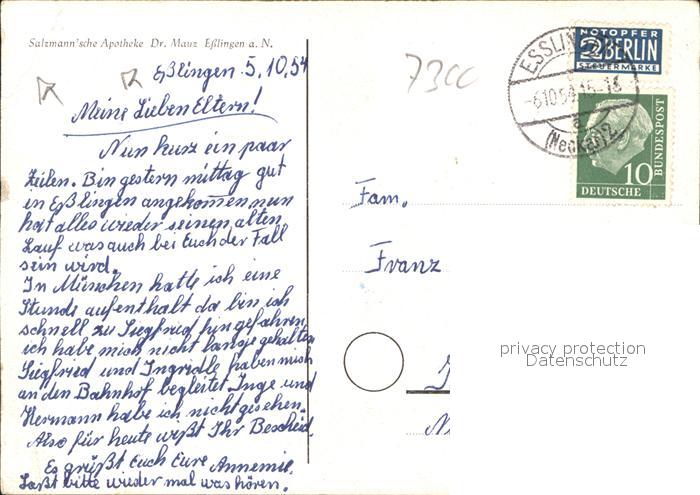 Salzmann'sche Apotheke Dr. Mauz Eßlingen a. N.
Eßlingen 5.10.54
Meine Lieben Eltern!
Nun kurz ein paar
Zeilen. Bin gestern mittag gut
in Eßlingen angekom̄en nun
hat alles wieder seinen alten
Lauf was auch bei Euch der Fall
sein wird.
In München hatte ich eine
Stunde aufenthalt da bin ich
schnell zu Siegfried hingefahren
ich habe mich nicht lange gehalten
Siegfried und Ingridle haben mich
an den Bahnhof begleitet Inge und
Hermann habe ich nicht gesehen.
Also für heute wißt Ihr Bescheid.
Es grüßt Euch Eure Annemie.
Laßt bitte wieder mal was hören.
7300
NOTOPFER
2 BERLIN
STEUERMARKE
-6.10.54.15-16
a
(Neckar) 2
10
DEUTSCHE
BUNDESPOST
Fam.
Franz
privacy protection
Datenschutz